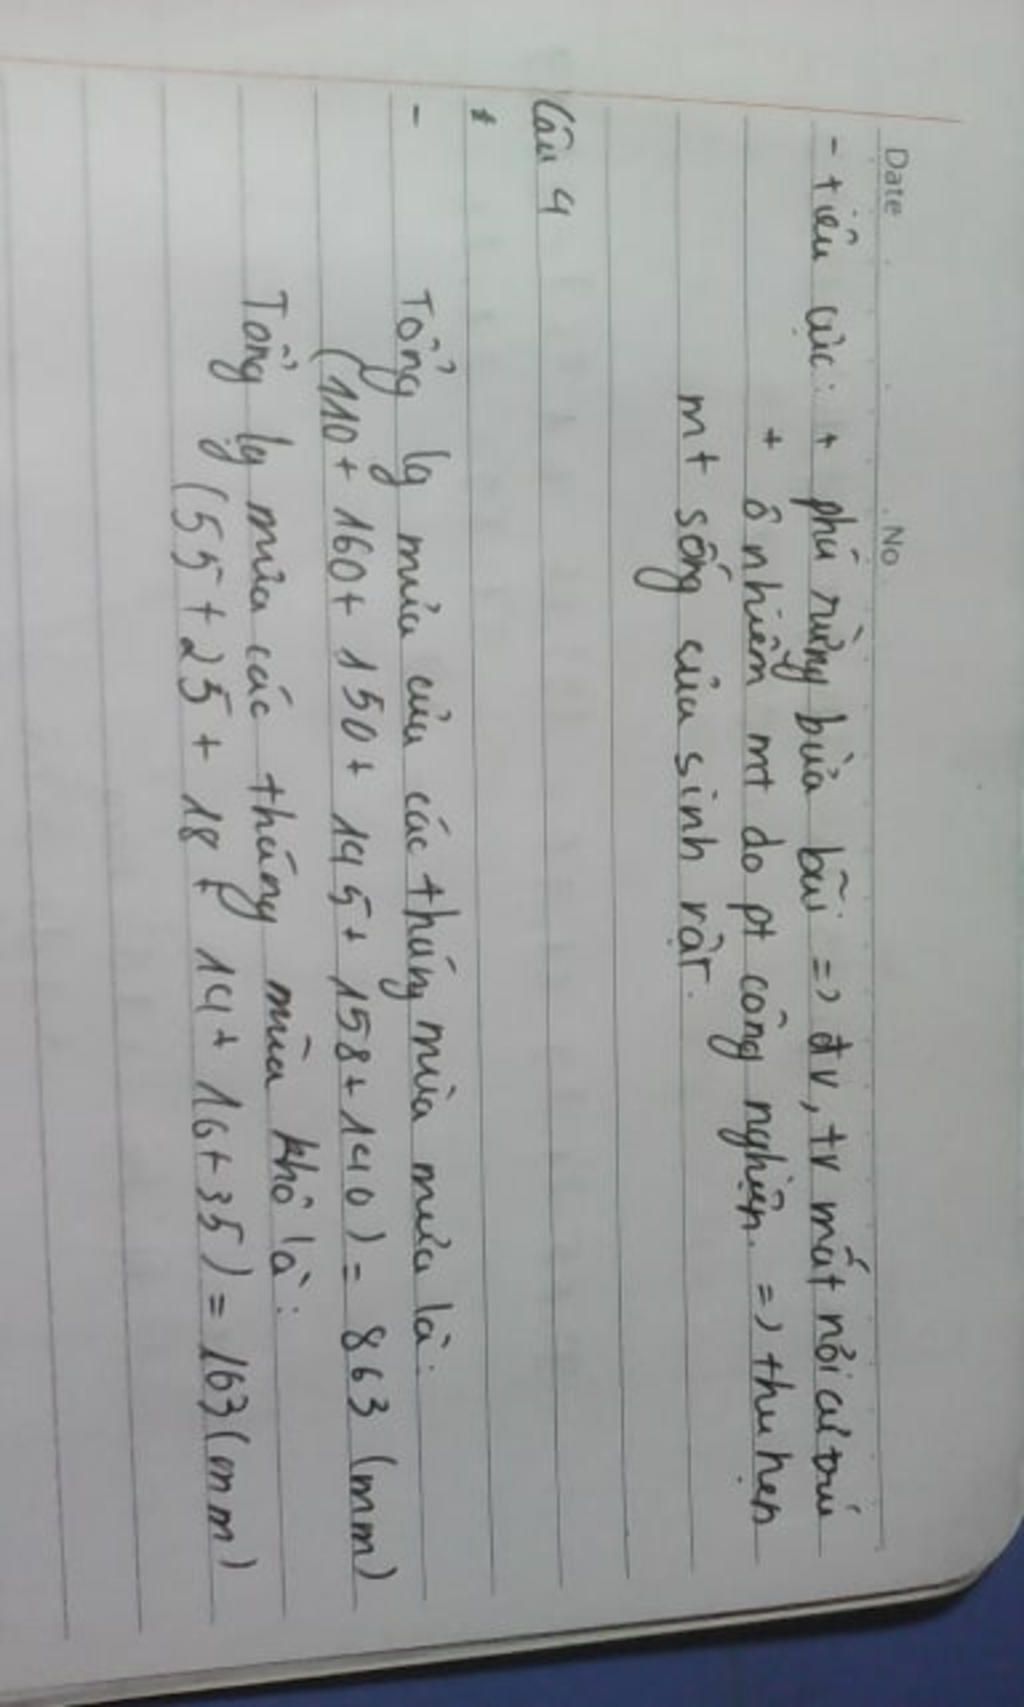 Date No
- tiêu cực: + phá rừng bừa bãi => đv, tv mất nơi cư trú
+ ô nhiễm mt do pt công nghiệp. => thu hẹp
mt sống của sinh vật.
Câu 4
*
- Tổng lg mưa của các tháng mùa mưa là:
(110 + 160 + 150 + 145 + 158 + 140) = 863 (mm)
Tổng lg mưa các tháng mùa khô là:
(55 + 25 + 18 + 14 + 16 + 35) = 163 (mm)